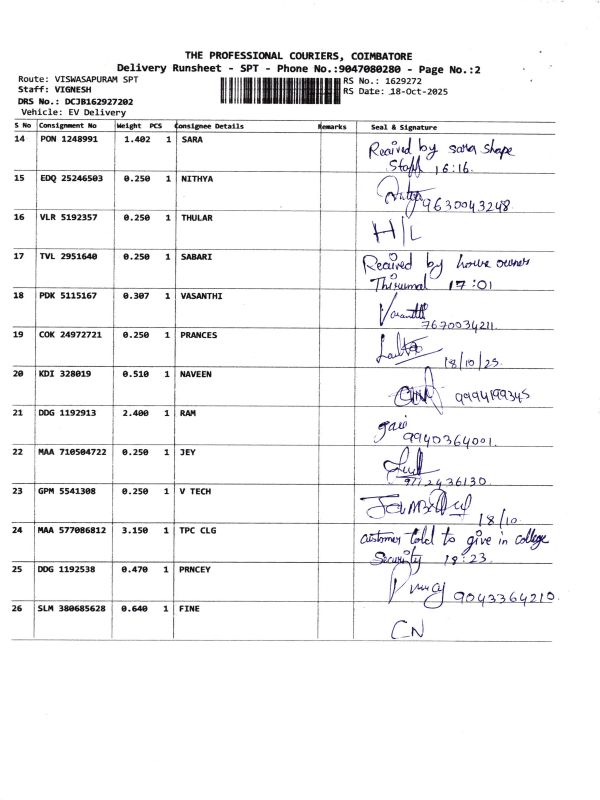 THE PROFESSIONAL COURIERS, COIMBATORE
Delivery Runsheet - SPT - Phone No.:9047080280 - Page No.:2
Route: VISWASAPURAM SPT RS No.: 1629272
Staff: VIGNESH RS Date: 18-Oct-2025
DRS No.: DCJB162927202
Vehicle: EV Delivery
S No Consignment No Weight PCS Consignee Details Remarks Seal & Signature
14 PON 1248991 1.402 1 SARA Recived by sara shape
Staff 16:16
15 EDQ 25246503 0.250 1 NITHYA
9630043248
16 VLR 5192357 0.250 1 THULAR H/L
17 TVL 2951640 0.250 1 SABARI Recived by house owner
Thirumal 17:01
18 PDK 5115167 0.307 1 VASANTHI Vasanthi
7670034211
19 COK 24972721 0.250 1 PRANCES
18/10/25
20 KDI 328019 0.510 1 NAVEEN 9994199345
21 DDG 1192913 2.400 1 RAM
9940364001
22 MAA 710504722 0.250 1 JEY
23 GPM 5541308 0.250 1 V TECH
18/10
24 MAA 577086812 3.150 1 TPC CLG customer told to give in college
Security :23
25 DDG 1192538 0.470 1 PRNCEY
9043364210
26 SLM 380685628 0.640 1 FINE
CN